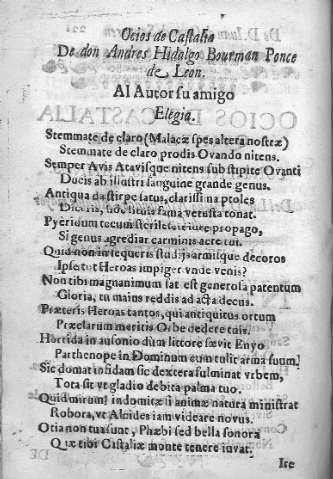 Ocios de Castalia
De don Andres Hidalgo Bourman Ponce
de Leon.
Al Autor su amigo
Elegia.
Stemmate de claro (Malacæ spes altera nostræ)
Stemmate de claro prodis Ovando nitens.
Semper Avis Atavisque nitens sub stipite Ovanti
Ducis ab illustri sanguine grande genus.
Antiqua da stirpe satus, clarissima proles
Diceris, hoc fama vetusta tonat.
Pyeridum tecum propago,
Si genus agrediar carminis aere tui.
Quid non insequeris studijs armisque decoros
Ipse tot Heroas impiger unde venis?
Non tibi magnanimum sat est generosa parentum
Gloria, tu maius reddis ad acta decus.
Præteris Heroas tantos, qui antiquitus ortum
Præclarum meritis Orbe dedere tuis.
Horrida in ausonio dùm littore sævit Enyo
Parthenope in Dominum cum tulit arma suum!
Sic domat infidam sic dextera fulminat vrbem,
Tota sit vt gladio debita palma tuo.
Quid mirum! indomitæ si animæ natura ministrat
Robora, vt Alcides iam videare novus.
Otia non tua sunt, Phæbi sed bella sonora
Quæ tibi Castaliæ monte tenere invat.
Ire